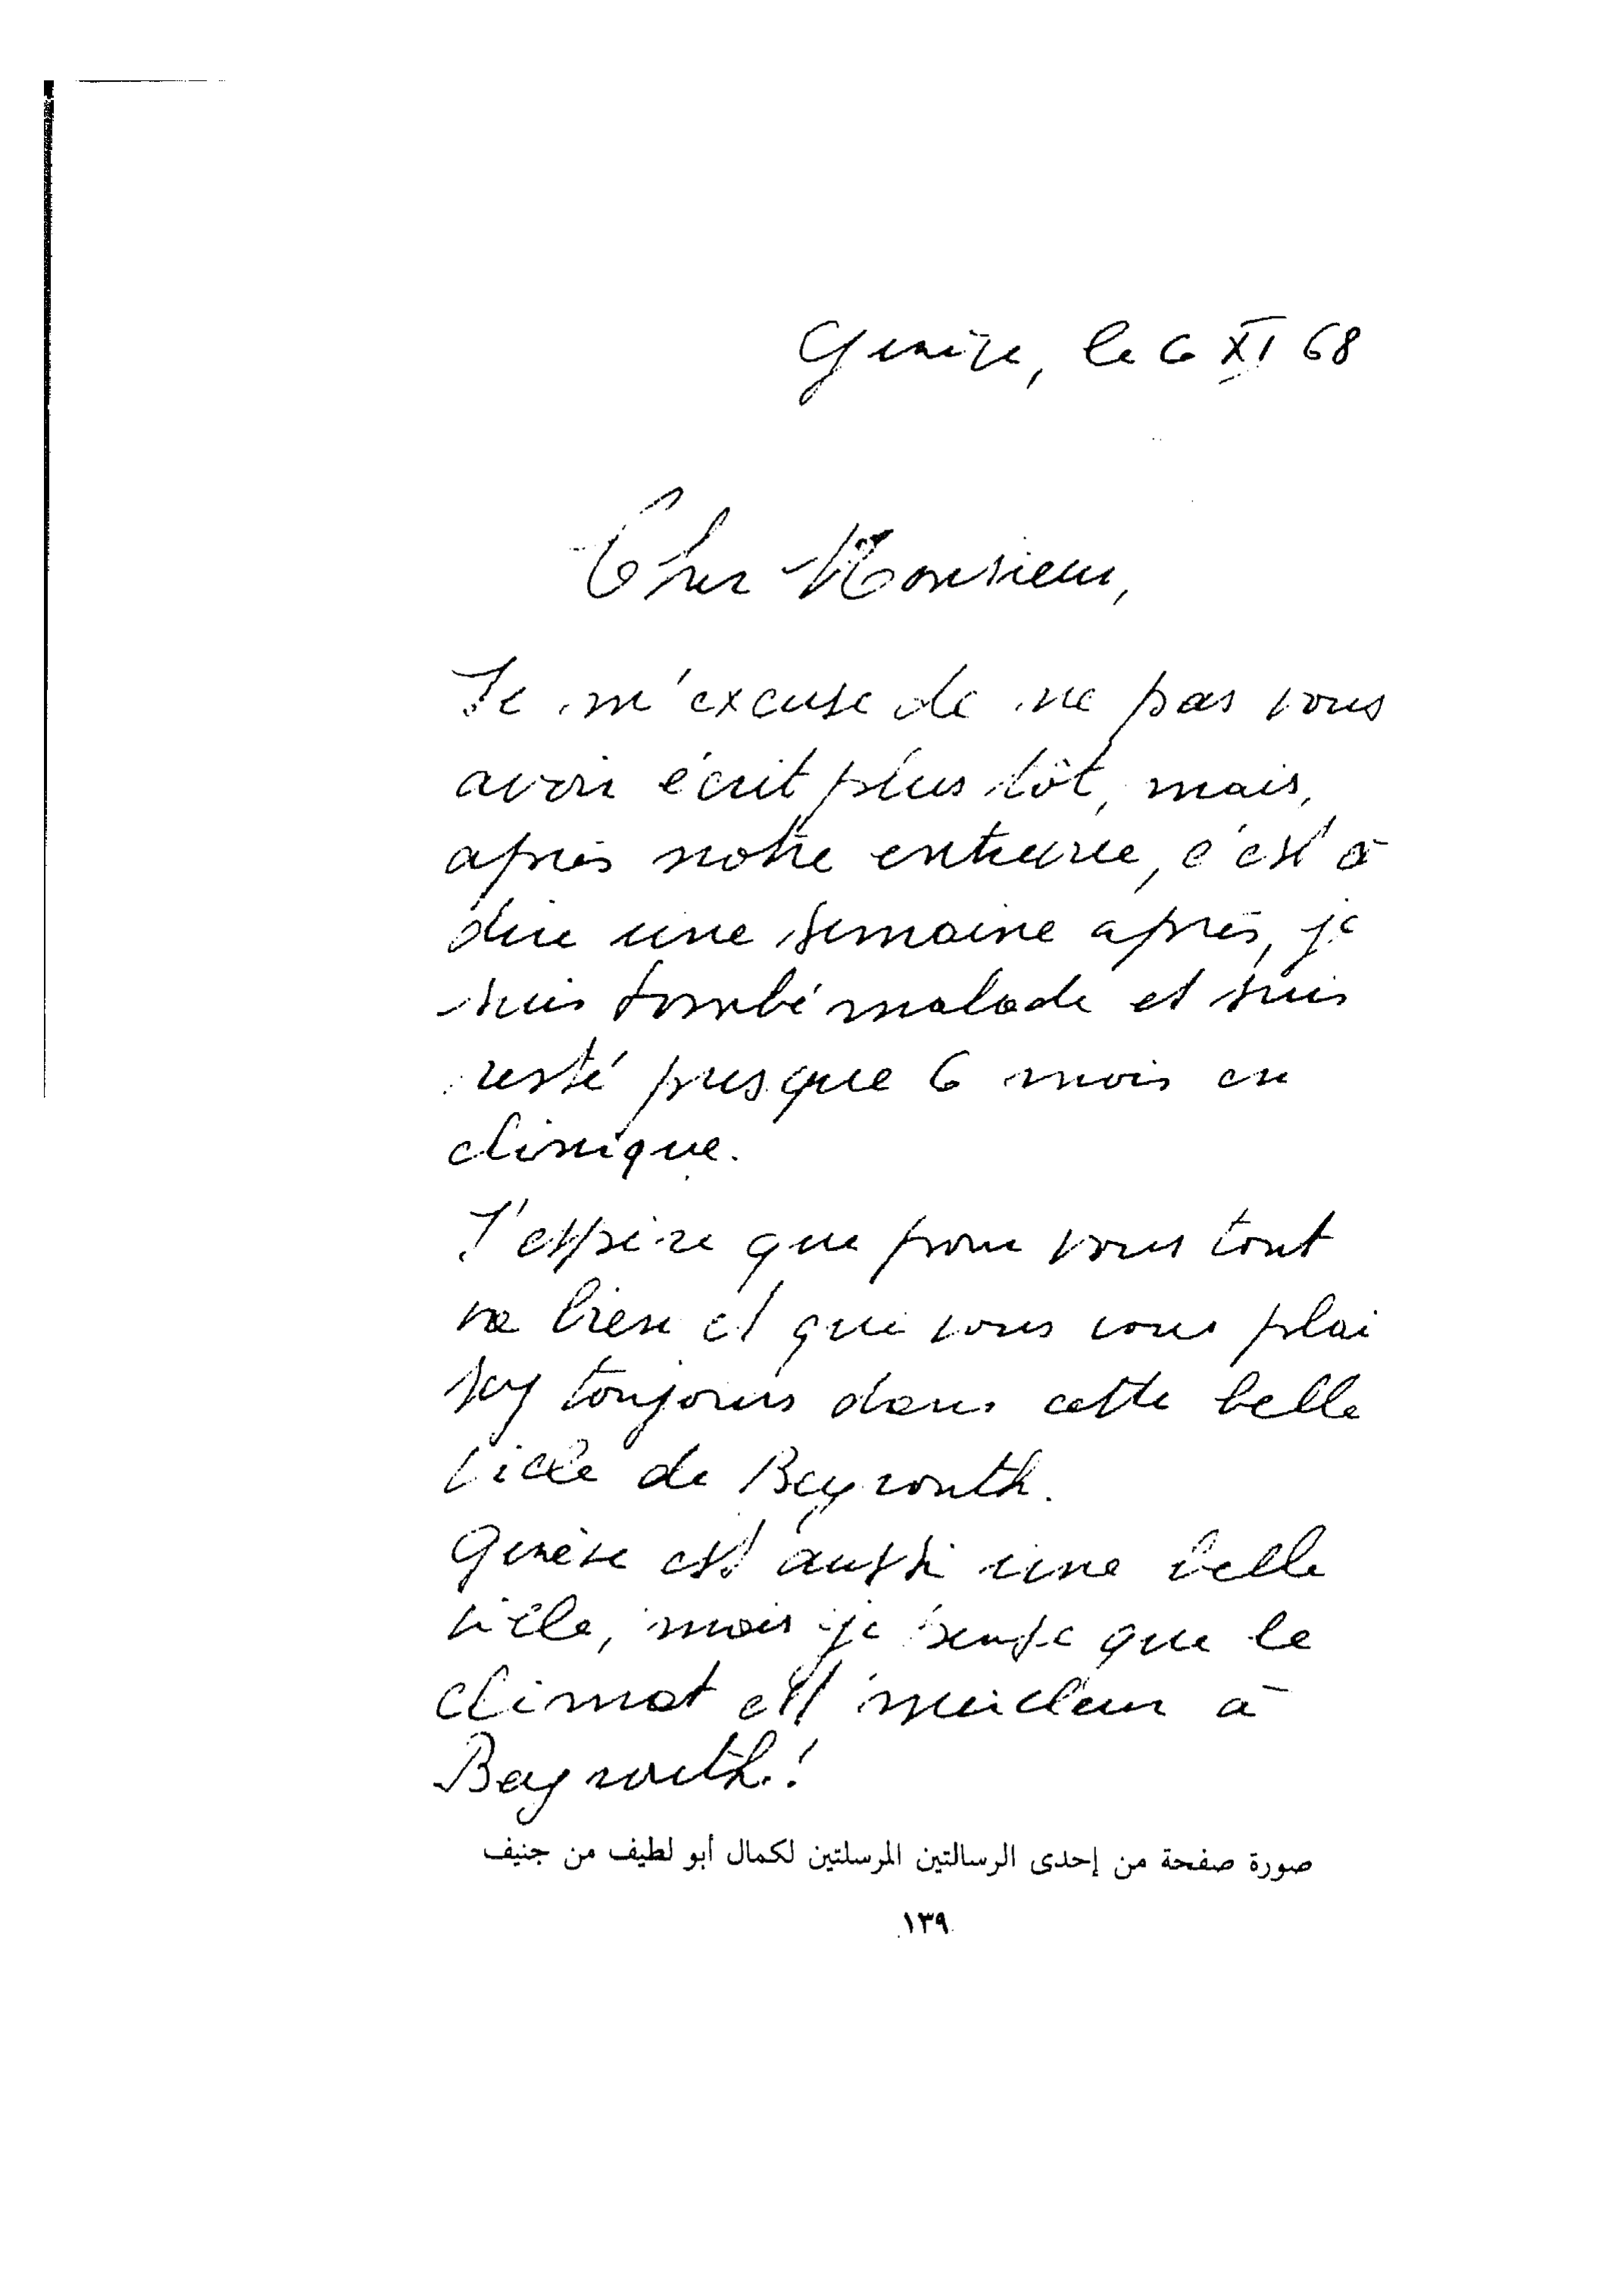 Genève, le 6 XI 68
Cher Monsieur,
Je m'excuse de ne pas vous
avoir écrit plus tôt, mais,
après notre entrevue, c'est à
dire une semaine après, je
suis tombé malade et suis
resté presque 6 mois en
clinique.
J'espère que pour vous tout
va bien et que vous vous plai
sez toujours dans cette belle
ville de Beyrouth.
Genève est aussi une belle
ville, mais je pense que le
climat est meilleur à
Beyrouth!
صورة صفحة من إحدى الرسالتين المرسلتين لكمال أبو لطيف من جنيف
١٣٩